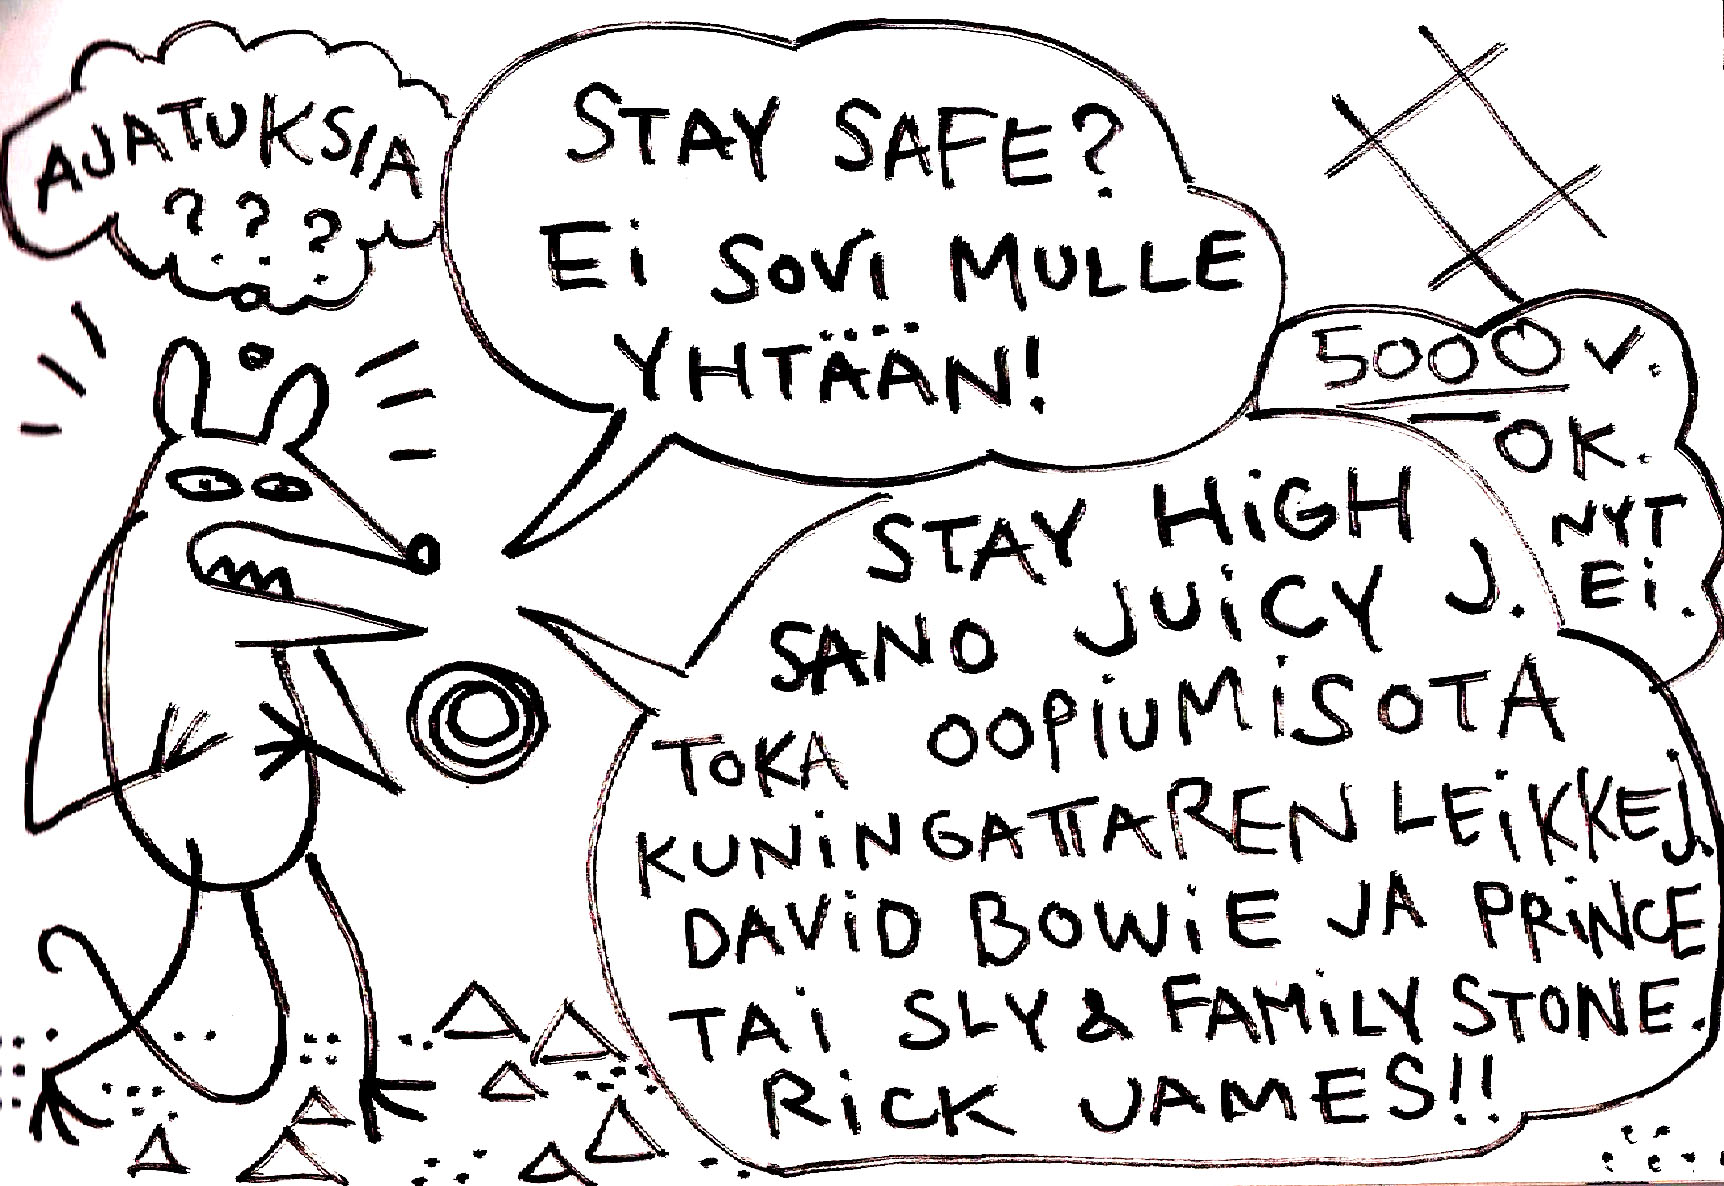 AJATUKSIA
? ? ?
STAY SAFE?
Ei SOVi MULLE
YHTÄÄN!
5000 V.
OK.
NYT
Ei.
STAY HiGH
SANO JUiCY J.
TOKA OOPiUMiSOTA
KUNiNGATTAREN LEiKKEJ.
DAViD BOWiE JA PRiNCE
TAi SLY & FAMiLY STONE.
RiCK JAMES!!